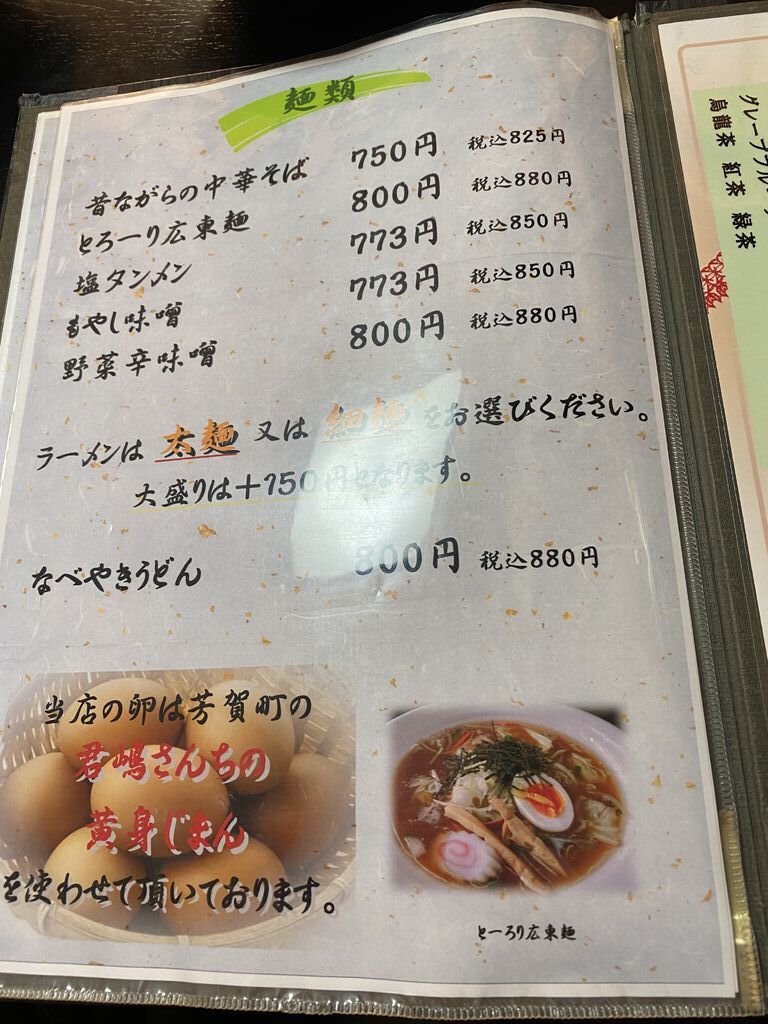 麺類
昔ながらの中華そば 750円 税込825円
とろーり広東麺 800円 税込880円
塩タンメン 773円 税込850円
もやし味噌 773円 税込850円
野菜辛味噌 800円 税込880円
ラーメンは 太麺 又は 細麺 をお選びください。
大盛りは+150円となります。
なべやきうどん 800円 税込880円
当店の卵は芳賀町の
君嶋さんちの
黄身じまん
を使わせて頂いております。
とーろり広東麺
烏龍茶 紅茶 緑茶